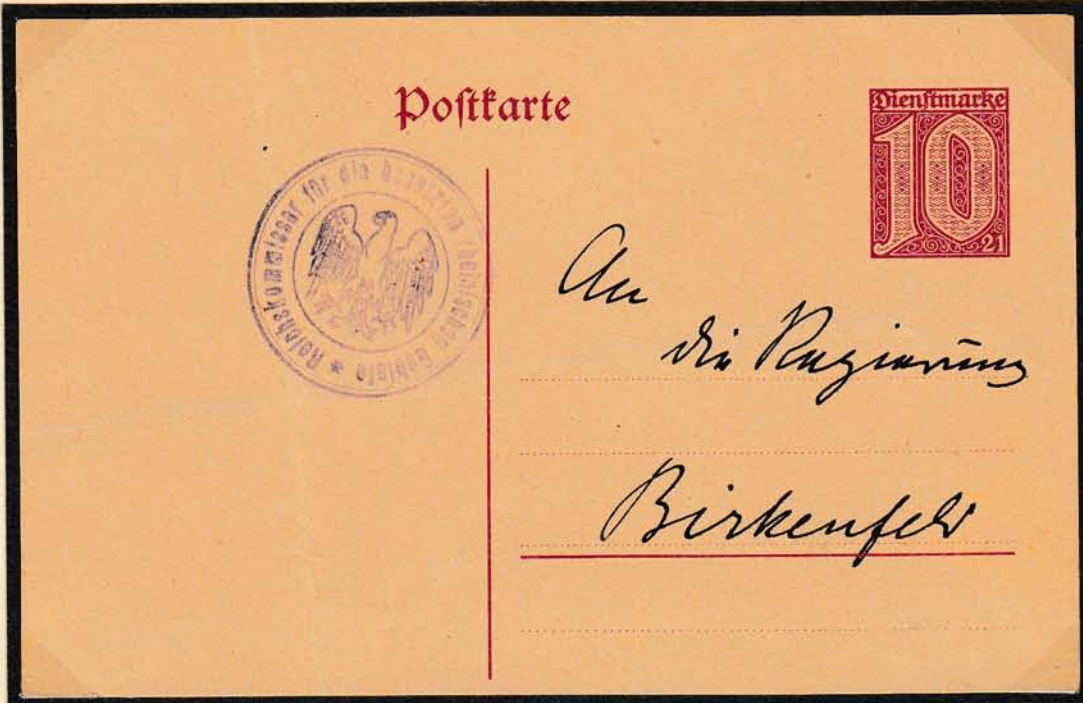 Postkarte
Dienstmarke
10
21
Reichskommissar für die besetzten rheinischen Gebiete *
An
die Regierung
Birkenfeld